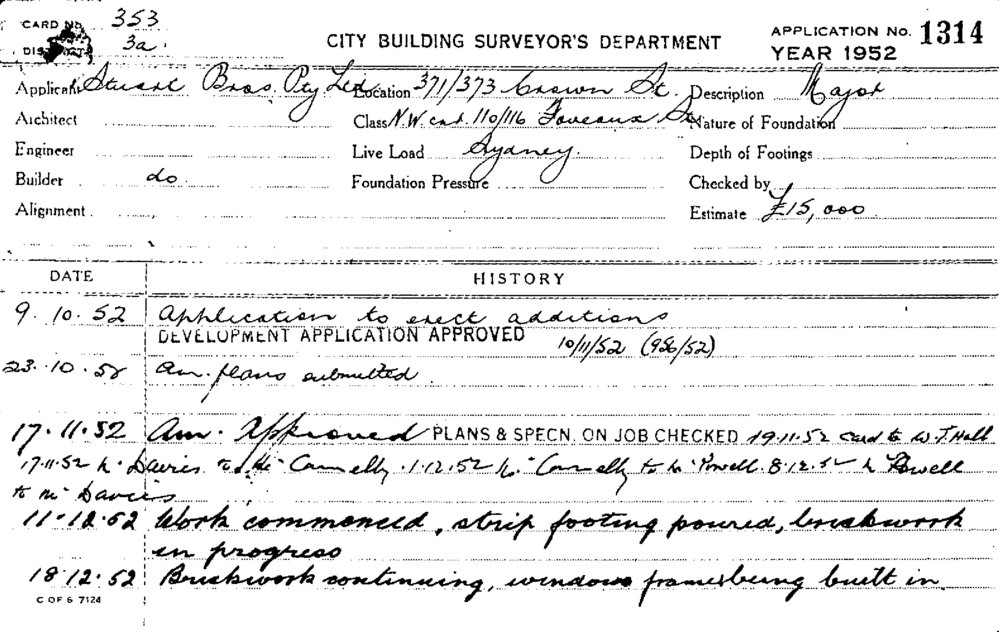 CARD No. 353
DISTRICT 3a.
CITY BUILDING SURVEYOR'S DEPARTMENT
APPLICATION No. 1314
YEAR 1952
Applicant Stuart Bros. Pty Ltd. Location 371/373 Crown St. Description Major
Architect Class N.W. cnr. 110/116 Foveaux St Nature of Foundation
Engineer Live Load Sydney. Depth of Footings
Builder do Foundation Pressure Checked by
Alignment Estimate £15,000
DATE HISTORY
9.10.52 Application to erect additions
DEVELOPMENT APPLICATION APPROVED 10/11/52 (956/52)
23.10.52 Am. plans submitted.
17.11.52 Am. Approved PLANS & SPECN. ON JOB CHECKED 19.11.52 card to W.J. Hall
17.11.52 Mr Davies to Mr Connelly. 1.12.52 Mr Connelly to Mr Powell. 8.12.52 Mr Powell
to Mr Davies
11.12.52 Work commenced, strip footing poured, brickwork
in progress
18.12.52 Brickwork continuing, window frames being built in.
C OF 6 7124